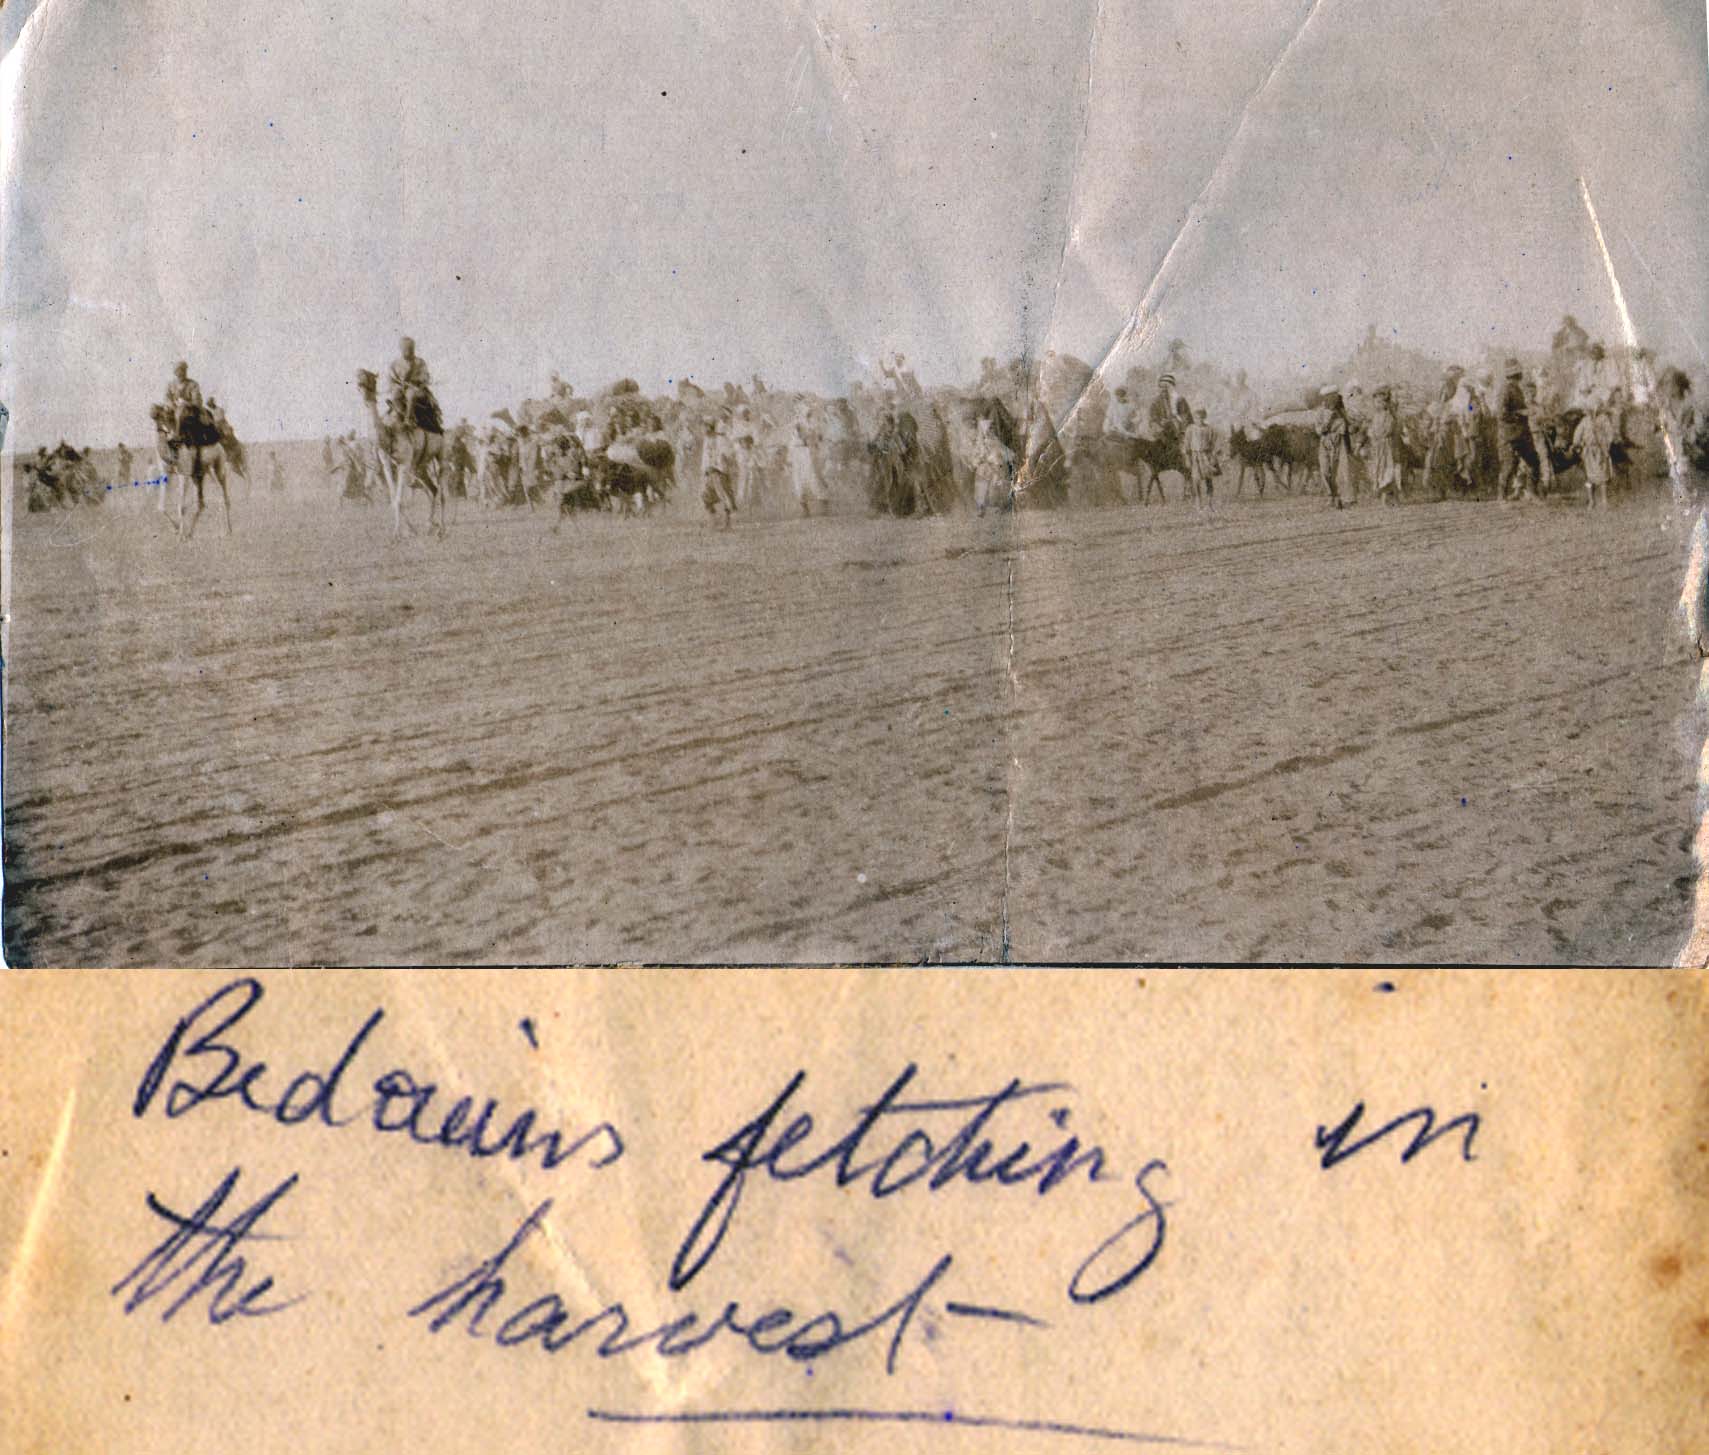 Bedouins fetching in
the harvest—